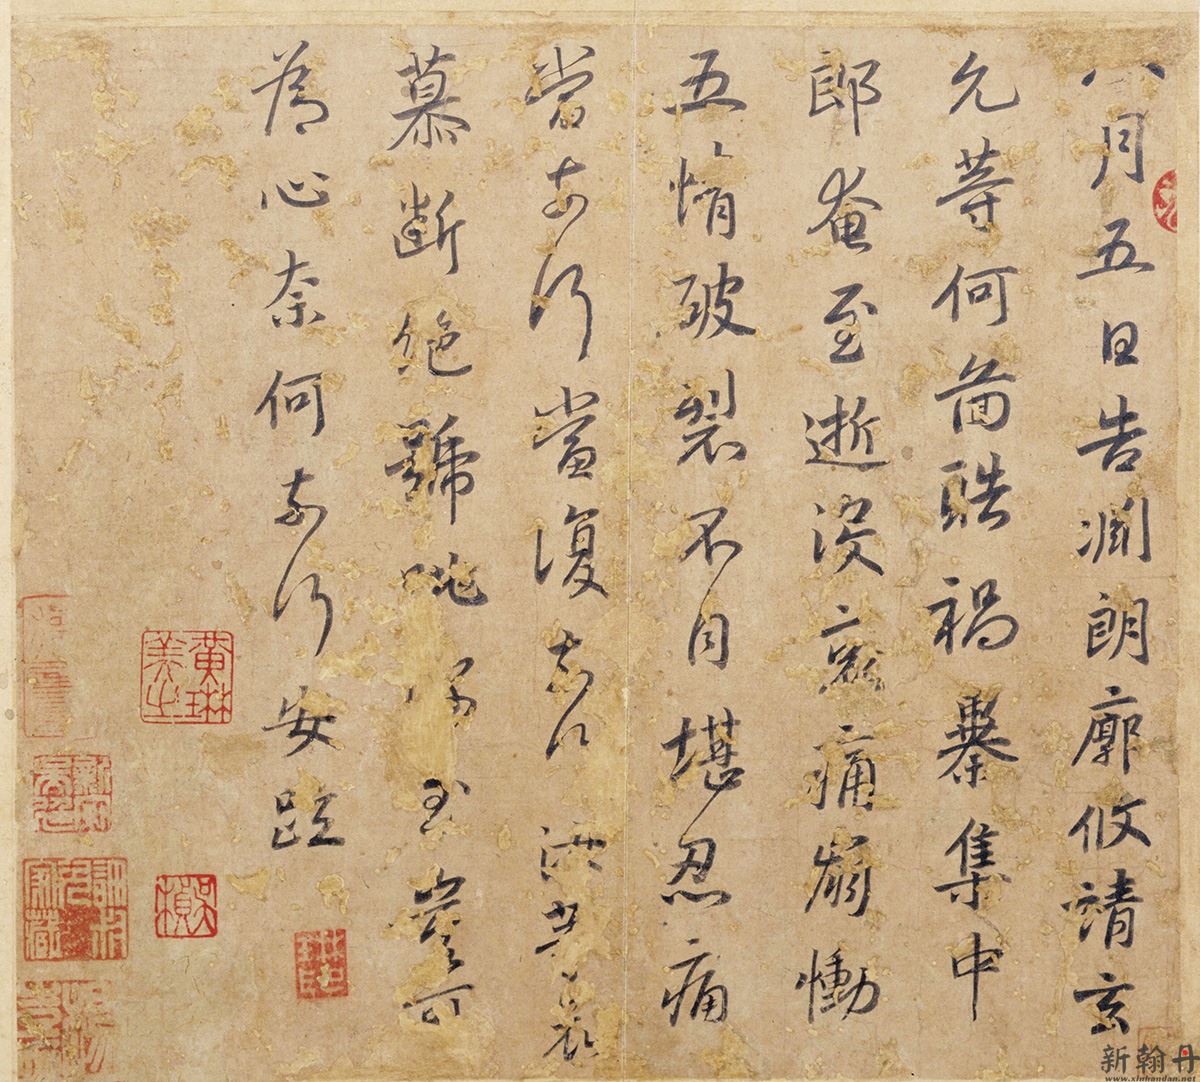 八月五日告淵朗廓攸靖玄
允等何圖酷禍暴集中
郎奄至逝沒哀痛崩慟
五情破裂不自堪忍痛
當奈何當復奈何汝等哀
慕斷絕號咷深至豈可
為心奈何奈何安疏
黃琳美之
吳楨
新翰丹
www.xinhandan.net